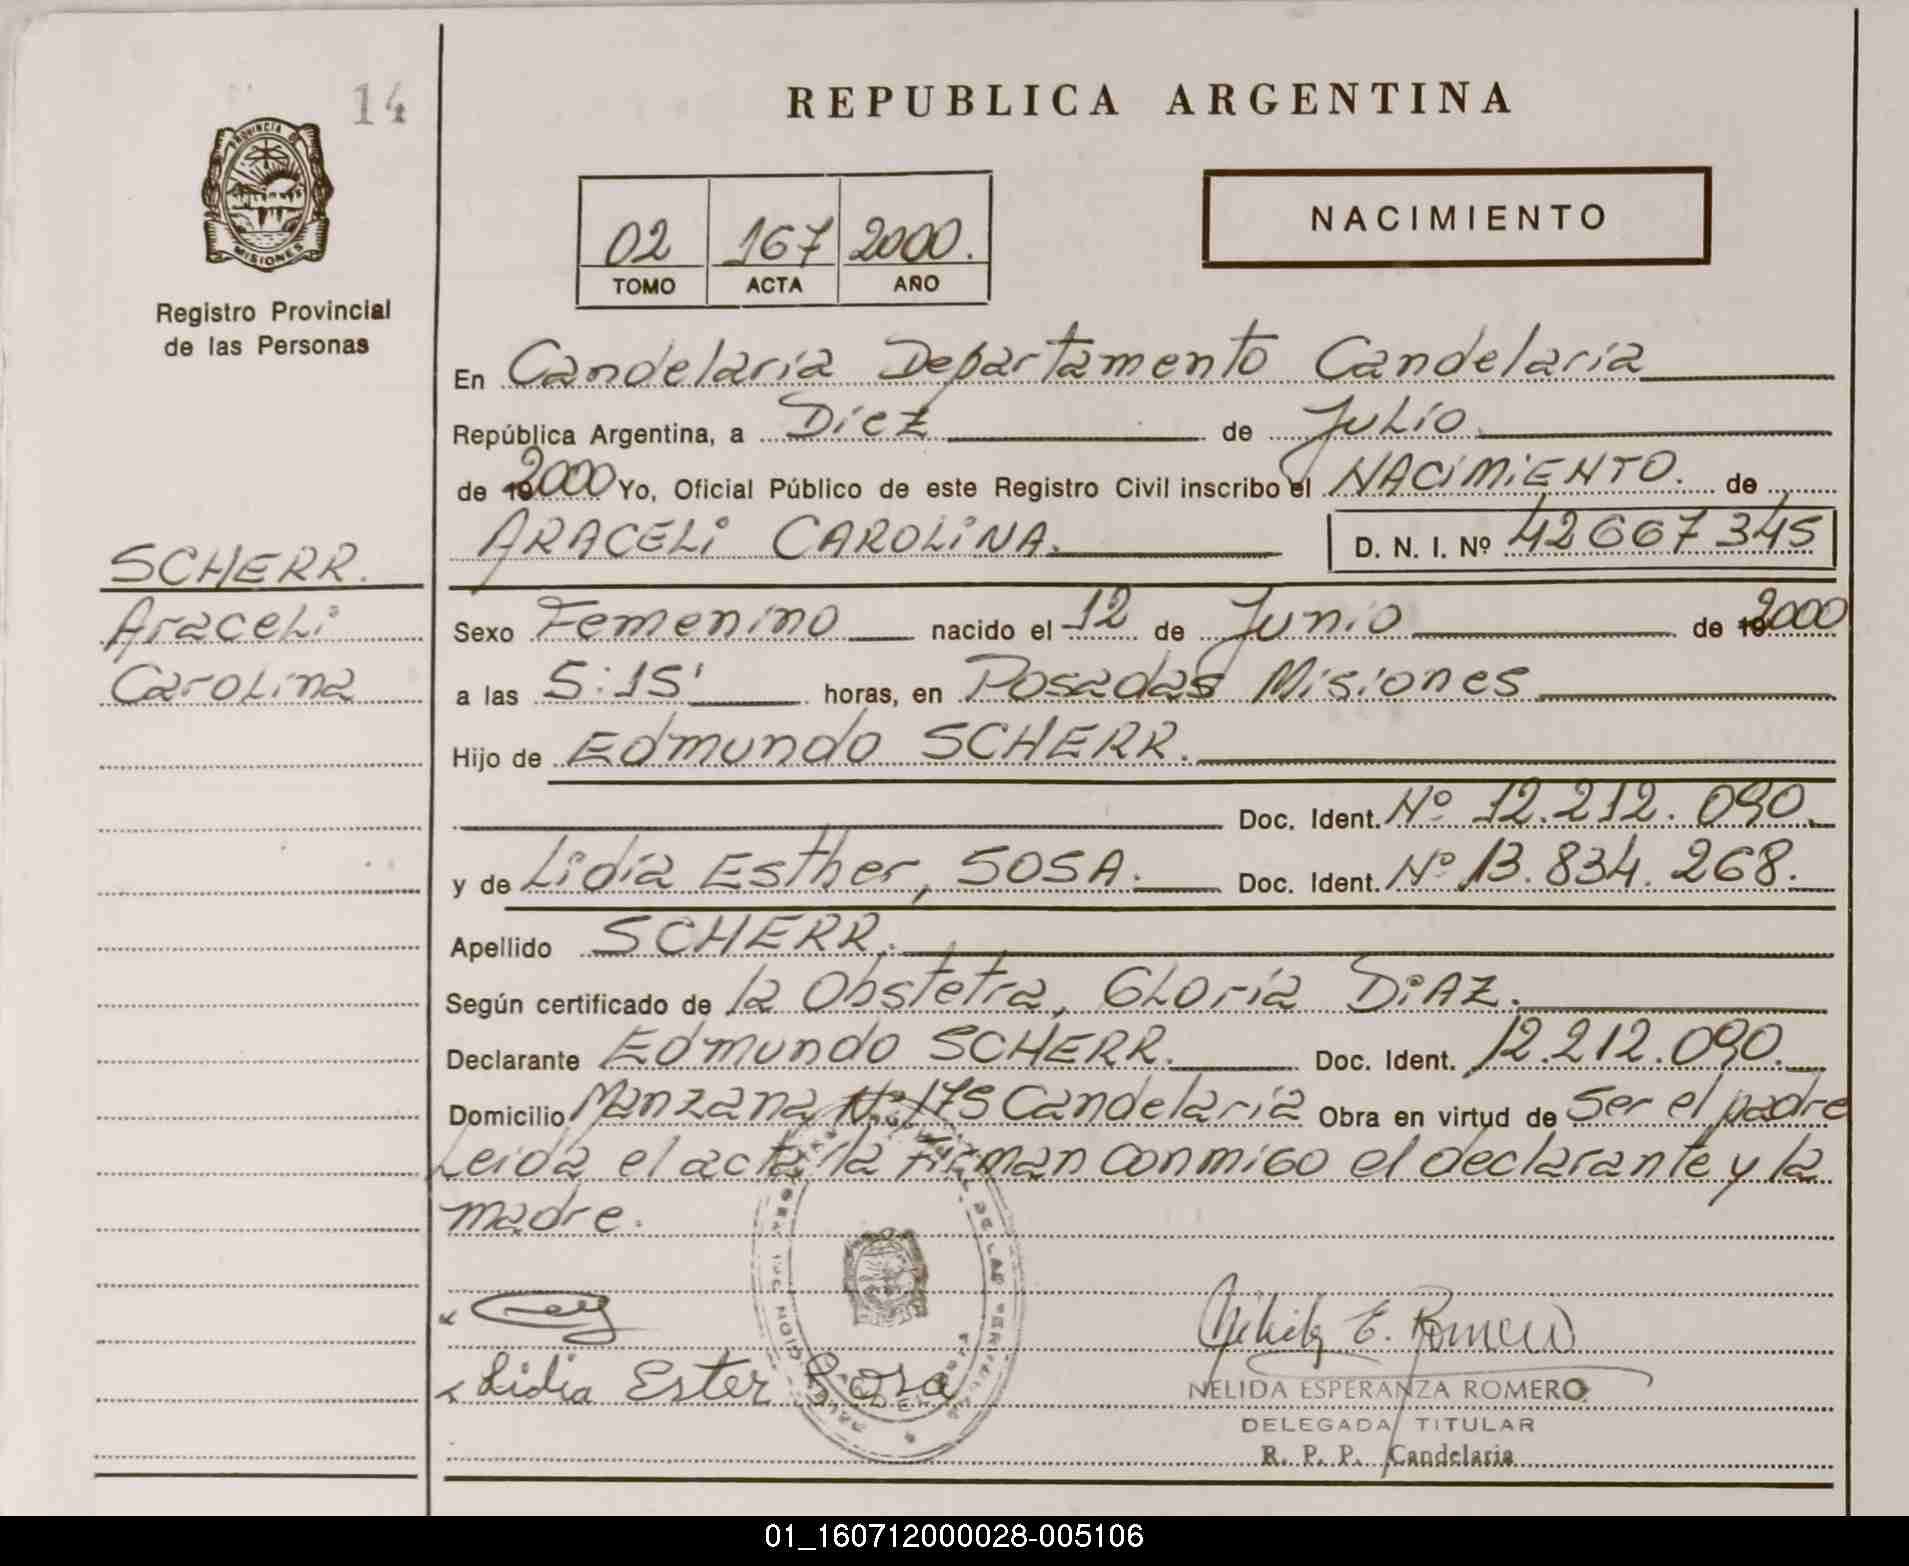 14
REPUBLICA ARGENTINA
PROVINCIA DE
MISIONES
NACIMIENTO
02 167 2000.
TOMO ACTA AÑO
Registro Provincial
de las Personas
En Candelaria Departamento Candelaria
República Argentina, a Diez de Julio
de 2000 Yo, Oficial Público de este Registro Civil inscribo el NACIMIENTO. de
ARACELI CAROLINA. D. N. I. Nº 42667345
SCHERR.
Araceli
Carolina
Sexo Femenino nacido el 12 de Junio de 2000
a las 5:15' horas, en Posadas Misiones
Hijo de Edmundo SCHERR.
Doc. Ident. Nº 12.212.090.
y de Lidia Esther, SOSA. Doc. Ident. Nº 13.834.268.
Apellido SCHERR.
Según certificado de la Obstetra, Gloria DIAZ.
Declarante Edmundo SCHERR. Doc. Ident. 12.212.090.
Domicilio Manzana Nº 175 Candelaria Obra en virtud de ser el padre
Leida el acta la firman conmigo el declarante y la
madre.
Nélida E. Romero
Lidia Ester Sosa
NELIDA ESPERANZA ROMERO
DELEGADA TITULAR
R. P. P. Candelaria
01_160712000028-005106